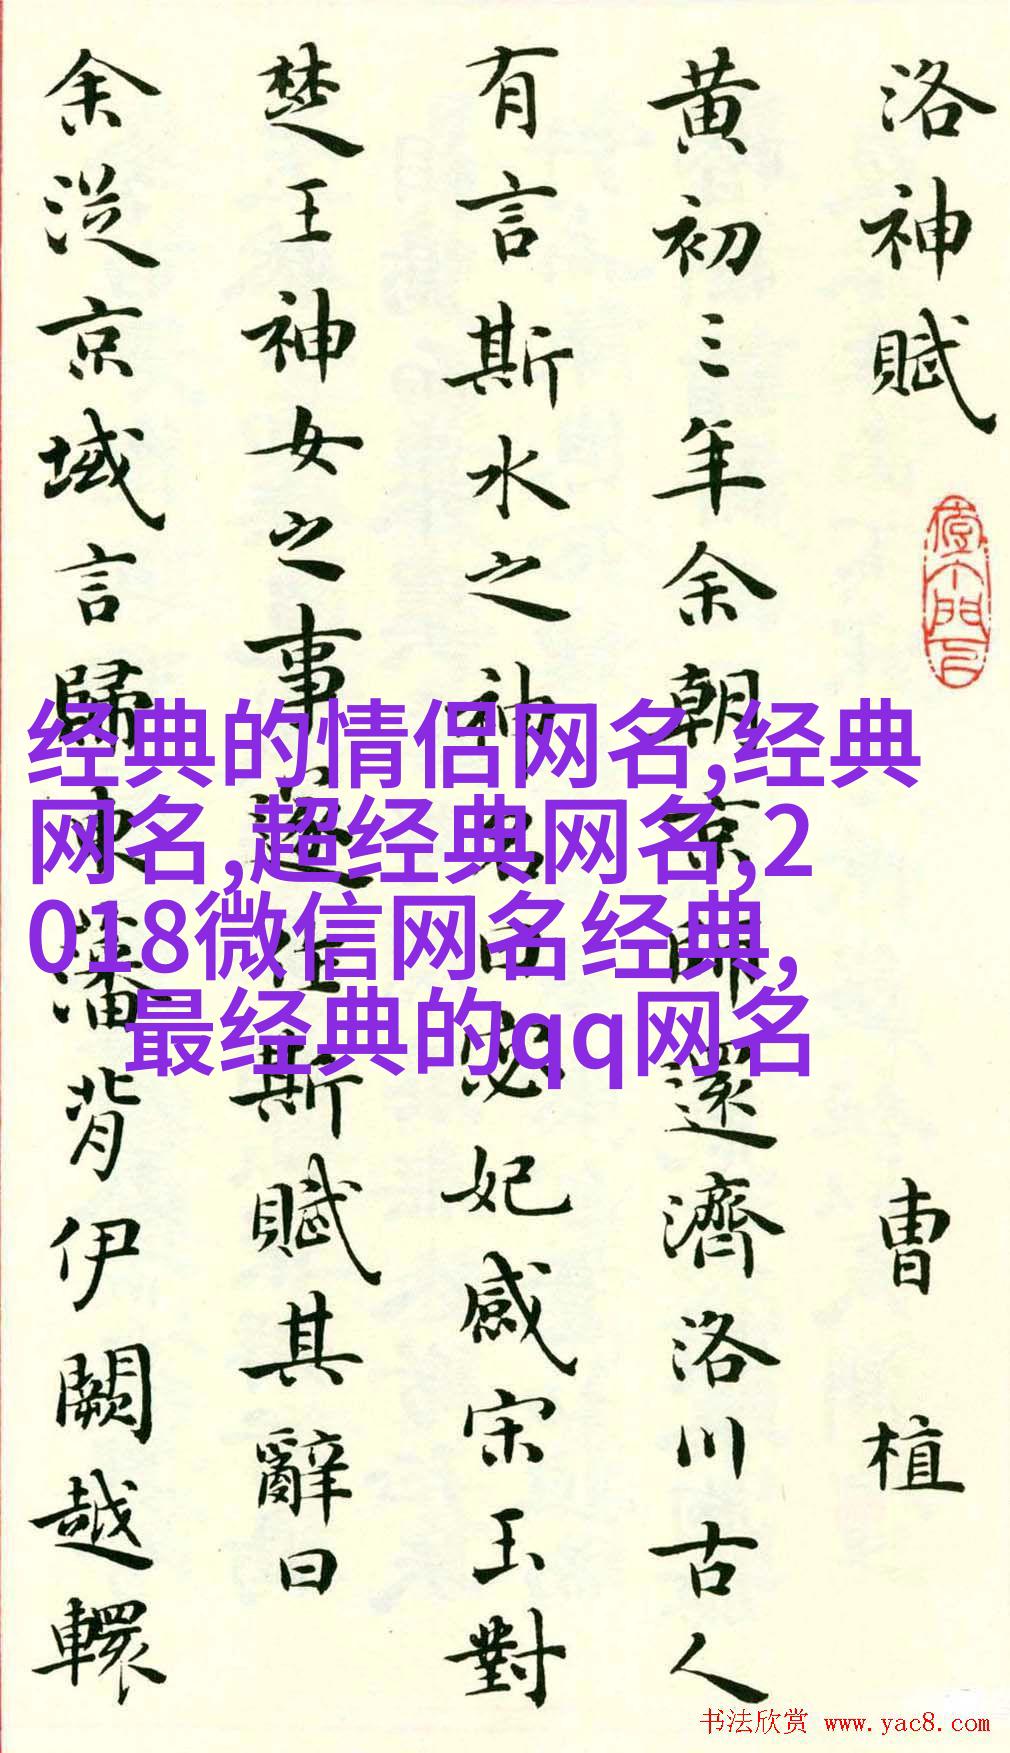 洛神賦
曹植
黄初三年余朝京師還濟洛川古人
有言斯水之神名曰宓妃感宋玉對
楚王神女之事遂作斯賦其辭曰
余从京域言歸東藩背伊闕越轘
经典的情侣网名,经典
网名,超经典网名,2
018微信网名经典,
最经典的qq网名
书法欣赏 www.yac8.com